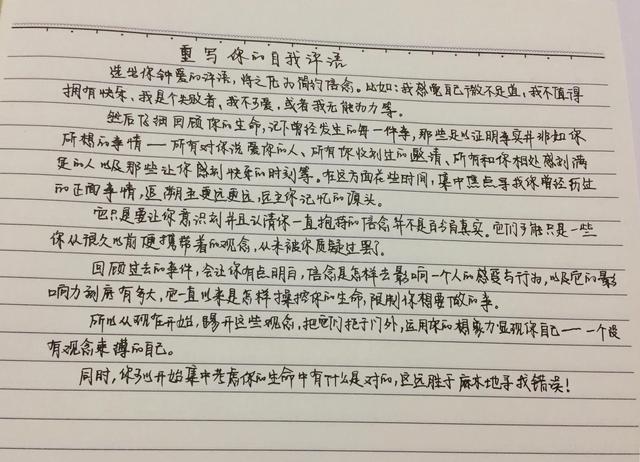 重写你的自我评语
选出你钟爱的评语,将之化为简约信念。比如:我感觉自己微不足道,我不值得
拥有快乐、我是个失败者,我不够,或者我无能为力等。
然后仔细回顾你的生命,记下曾经发生的每一件事,那些足以证明事实并非如你
所想的事情——所有对你说爱你的人、所有你收到过的邀请、所有和你相处感到满
足的人以及那些让你感到快乐的时刻等。在这方面花些时间,集中焦点寻找你曾经历过
的正面事情,追溯至更远更远,直至你记忆的源头。
它只是要让你意识到并且认清你一直抱持的信念并不是百分百真实。它们可能只是一些
你从很久以前便携带着的观念,从未被你质疑过罢了。
回顾过去的事件,会让你有点明白,信念是怎样去影响一个人的感受与行为,以及它的影
响力到底有多大,它一直以来是怎样操控你的生命,限制你想要做的事。
所以从现在开始,踢开这些观念,把它们拒于门外,运用你的想象力显现你自己——一个没
有观念束缚的自己。
同时,你可以开始集中考虑你的生命中有什么是对的,这远胜于麻木地寻找错误!